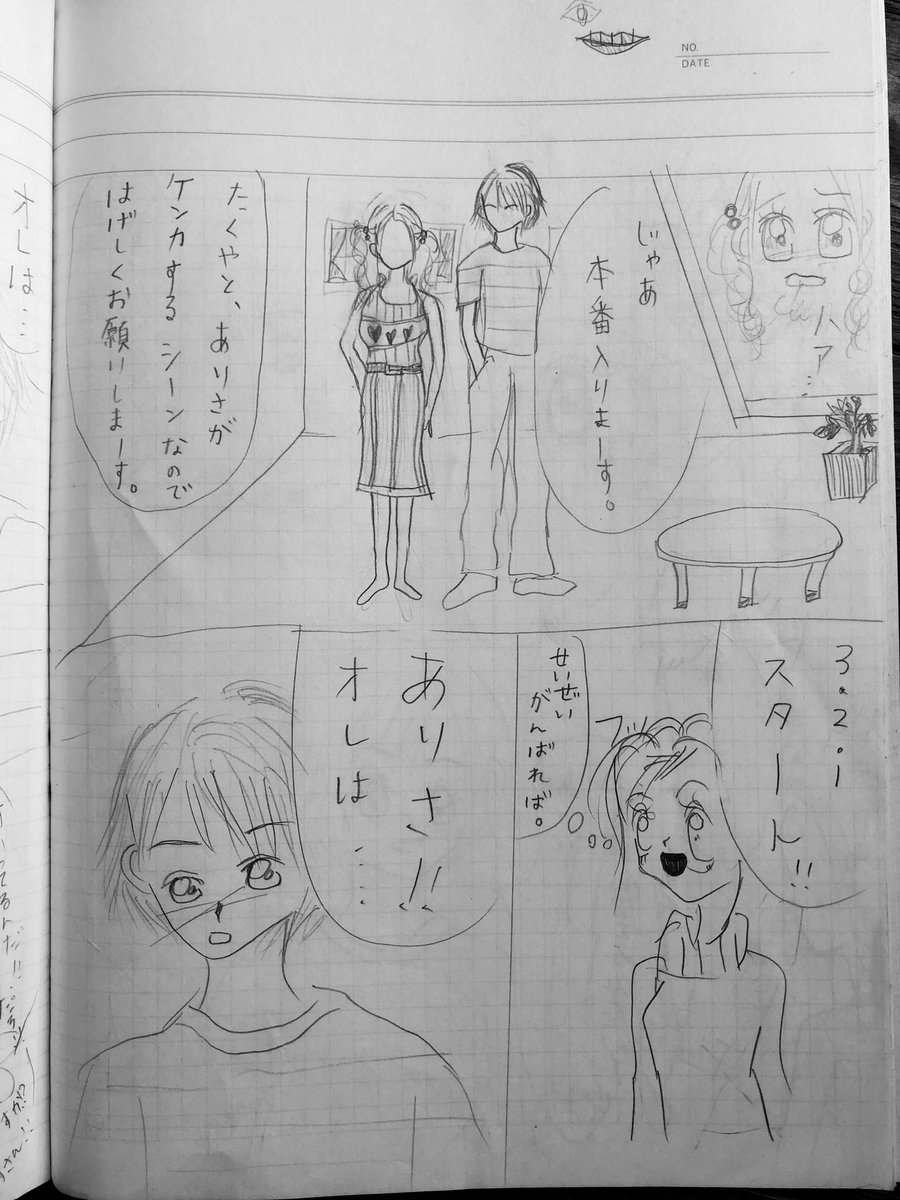 NO.
DATE
ハア…
じゃあ
本番入りまーす。
たくやと、ありさが
ケンカするシーンなので
はげしくお願いしまーす。
3.2.1
スタート!!
せいぜい
がんばれば。
ありさ!!
オレは…
オレは…